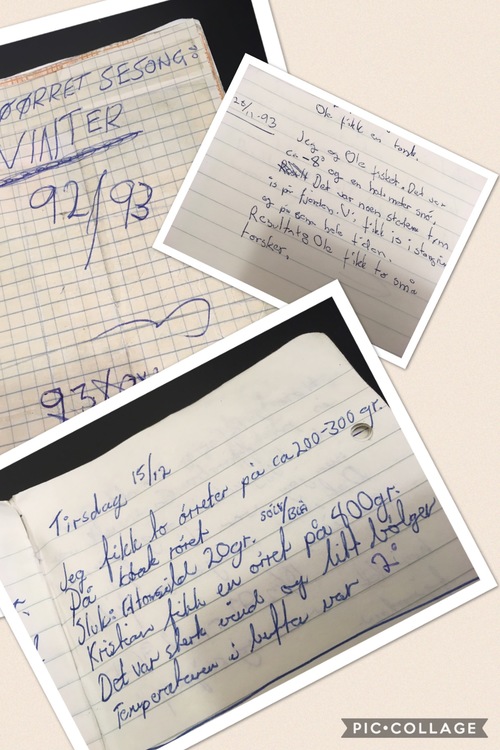 ØØRRET SESONG:
VINTER
92/93
93
Ole fikk en torsk.
28/11-93
Jeg og Ole fisket. Det var
ca -8° og en halv meter snø.
Det var noen steder
is på fjorden. Vi fikk is i
og på som hele tiden.
Resultatg Ole fikk to små
torsker.
Tirsdag 15/12
Jeg fikk to ørreter på ca 200-300 gr.
på kloak røret
Sluk: Atomsild 20gr. SØLV/BLÅ
Kristian fikk en ørret på 400gr.
Det var sterk vind og litt bølger
Temperaturen i luften var 2°
PIC•COLLAGE